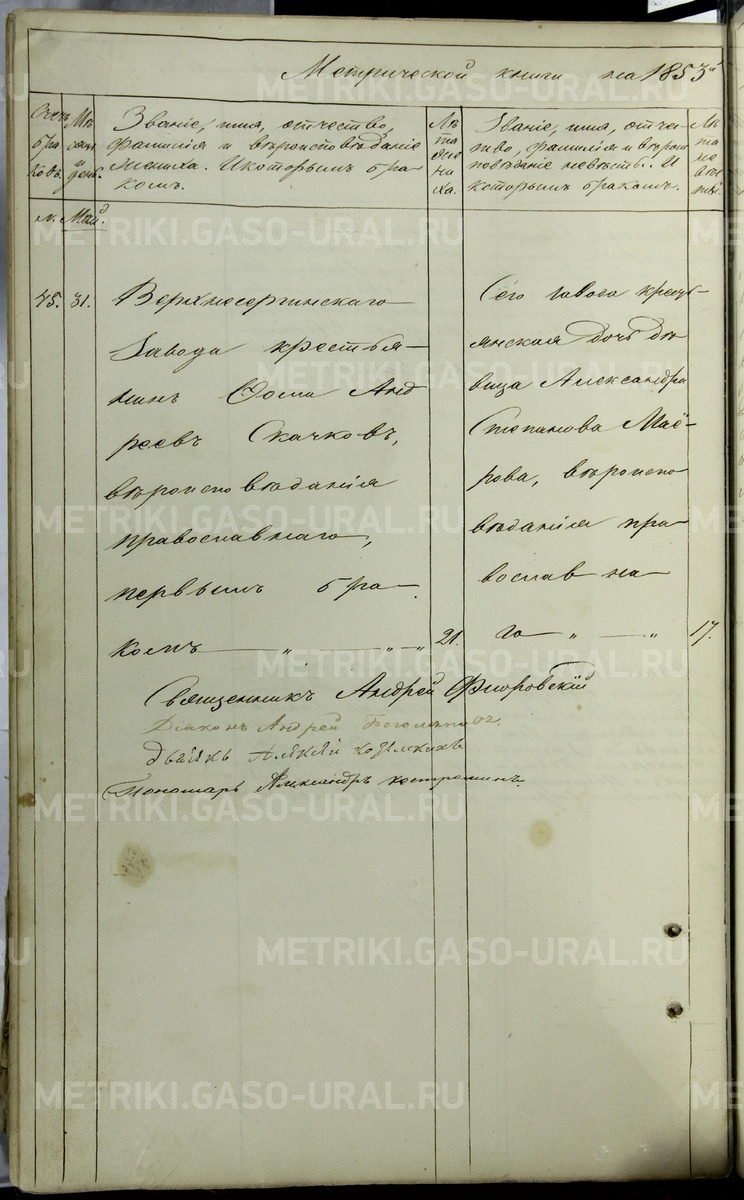 Метрической книги на 1853й
Счетъ браковъ.
Мѣсяцъ и день.
Званіе, имя, отчество,
фамилія и вѣроисповѣданіе
жениха. И которымъ бра-
комъ.
Лѣта жениха.
Званіе, имя, отче-
ство, фамилія и вѣроис
повѣданіе невѣсты. И
которымъ бракомъ.
Лѣта невѣсты.
м. Май.
45. 31.
Верхнесергинскаго
Завода крестья-
нинъ Ѳома Анд
реевъ Скачковъ,
вѣроисповѣданія
православнаго,
первымъ бра
комъ — „ — „ — „ 21.
Сего Завода кресть-
янская дочь дѣ
вица Александра
Степанова Маё-
рова, вѣроиспо
вѣданія пра
вослав на
го — „ — „ 17.
Священникъ Андрей Флоровскій
Діаконъ Андрей
Дьячекъ Алексій
Пономарь Александръ Костроминъ.
METRIKI.GASO-URAL.RU